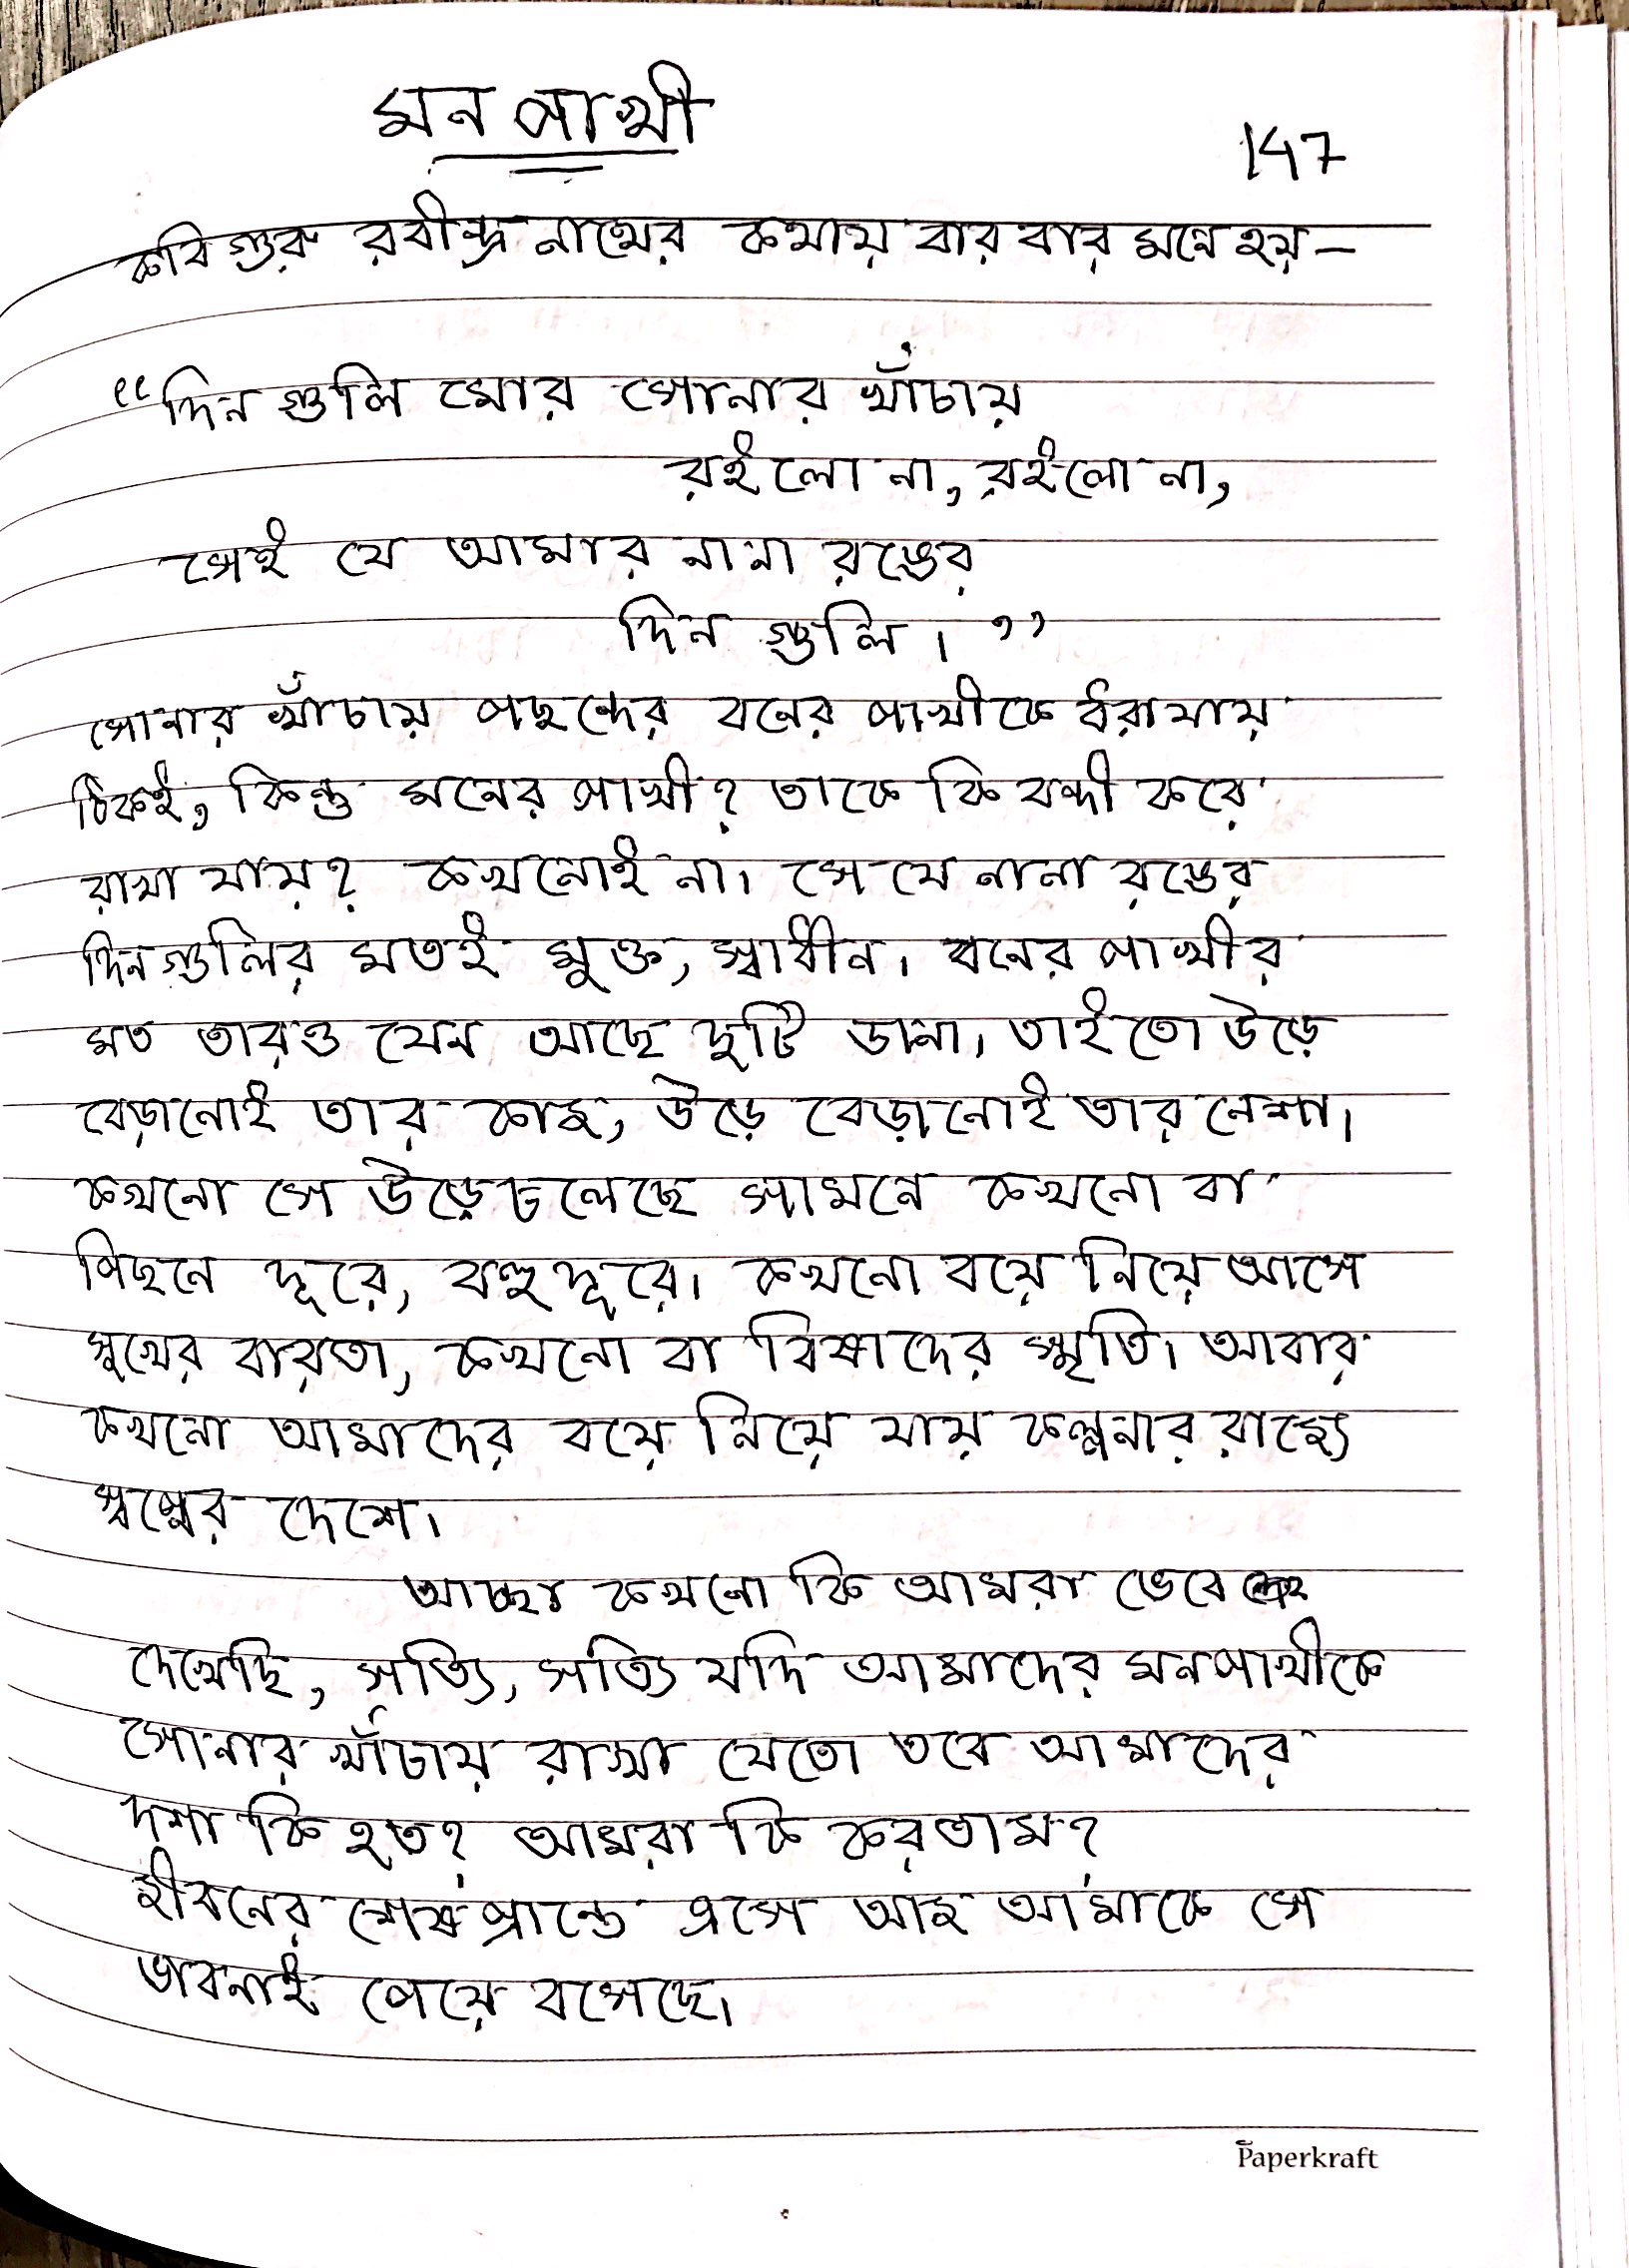 মন পাখী
147
কবিগুরু রবীন্দ্রনাথের কথায় বার বার মনে হয় –
“দিন গুলি মোর সোনার খাঁচায়
রইলো না, রইলো না,
সেই যে আমার নানা রঙের
দিন গুলি। ”
সোনার খাঁচায় পছন্দের বনের পাখীকে ধরা যায়
ঠিকই, কিন্তু মনের পাখী? তাকে কি বন্দী করে
রাখা যায়? কখনোই না। সে যে নানা রঙের
দিনগুলির মতই মুক্ত, স্বাধীন। বনের পাখীর
মত তারও যেন আছে দুটি ডানা। তাইতো উড়ে
বেড়ানোই তার কাজ, উড়ে বেড়ানোই তার নেশা।
কখনো সে উড়ে চলেছে সামনে কখনো বা
পিছনে দূরে, বহুদূরে। কখনো বয়ে নিয়ে আসে
সুখের বারতা, কখনো বা বিষাদের স্মৃতি। আবার
কখনো আমাদের বয়ে নিয়ে যায় কল্পনার রাজ্যে
স্বপ্নের দেশে।
আচ্ছা কখনো কি আমরা ভেবে
দেখেছি, সত্যি, সত্যি যদি আমাদের মনপাখীকে
সোনার খাঁচায় রাখা যেতো তবে আমাদের
দশা কি হত? আমরা কি করতাম?
জীবনের শেষপ্রান্তে এসে আজ আমাকে সে
ভাবনাই পেয়ে বসেছে।
Paperkraft